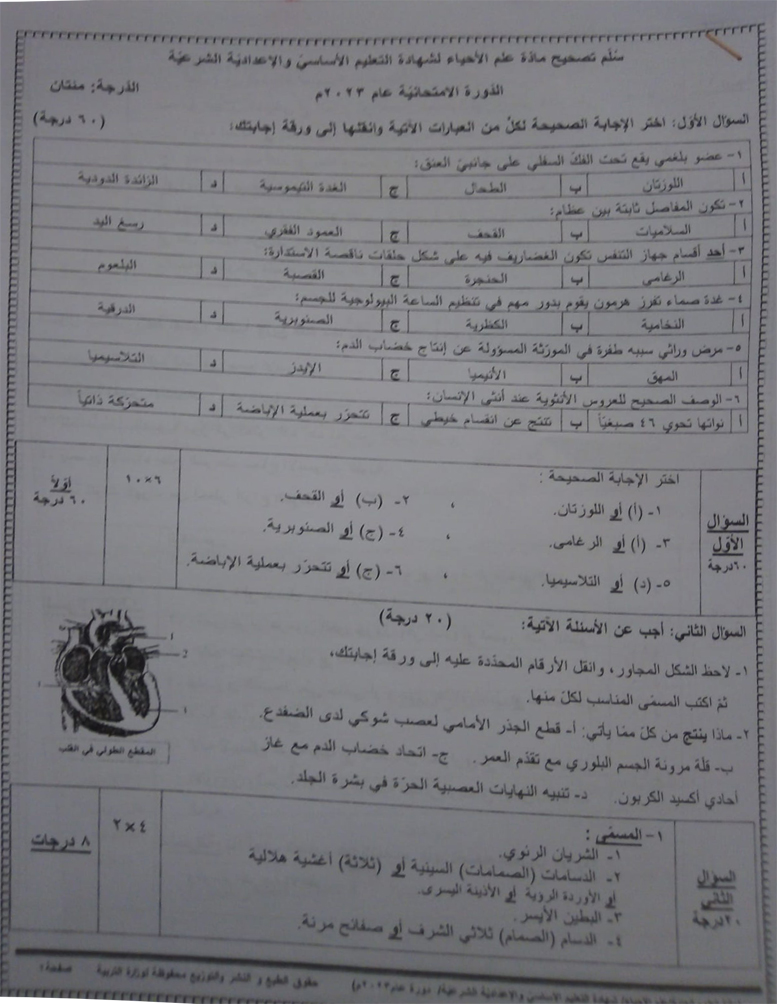 سُلّم تصحيح مادّة علم الأحياء لشهادة التعليم الأساسيّ والإعداديّة الشرعيّة
الدورة الامتحانيّة عام ٢٠٢٣م
الدرجة: مئتان
السؤال الأوّل: اختر الإجابة الصحيحة لكلّ من العبارات الآتية وانقلها إلى ورقة إجابتك: (٦٠ درجة)
١- عضو بلغمي يقع تحت الفكّ السفلي على جانبيّ العنق:
أ اللوزتان ب الطحال ج الغدة التيموسية د الزائدة الدودية
٢- تكون المفاصل ثابتة بين عظام:
أ السلاميات ب القحف ج العمود الفقري د رسغ اليد
٣- أحد أقسام جهاز التنفس تكون الغضاريف فيه على شكل حلقات ناقصة الاستدارة:
أ الرغامى ب الحنجرة ج القصبة د البلعوم
٤- غدة صماء تفرز هرمون يقوم بدور مهم في تنظيم الساعة البيولوجية للجسم:
أ النخامية ب الكظرية ج الصنوبرية د الدرقية
٥- مرض وراثي سببه طفرة في المورّثة المسؤولة عن إنتاج خضاب الدم:
أ المهق ب الأنيميا ج الإيدز د التلاسيميا
٦- الوصف الصحيح للعروس الأنثوية عند أنثى الإنسان:
أ نواتها تحوي ٤٦ صبغيّاً ب تنتج عن انقسام خيطي ج تتحرّر بعملية الإباضة د متحرّكة ذاتياً
السؤال
الأوّل
٦٠درجة
اختر الإجابة الصحيحة :
١- (أ) أو اللوزتان. ، ٢- (ب) أو القحف.
٣- (أ) أو الرغامى. ، ٤- (ج) أو الصنوبرية.
٥- (د) أو التلاسيميا. ، ٦- (ج) أو تتحرّر بعملية الإباضة.
٦×١٠
أوّلاً
٦٠ درجة
السؤال الثاني: أجب عن الأسئلة الآتية: (٢٠ درجة)
١- لاحظ الشكل المجاور، وانقل الأرقام المحدّدة عليه إلى ورقة إجابتك،
ثمّ اكتب المسمّى المناسب لكلّ منها.
٢- ماذا ينتج من كلّ ممّا يأتي: أ- قطع الجذر الأمامي لعصب شوكي لدى الضفدع.
ب- قلّة مرونة الجسم البلوري مع تقدّم العمر. ج- اتحاد خضاب الدم مع غاز
أحادي أكسيد الكربون. د- تنبيه النهايات العصبية الحرّة في بشرة الجلد.
1
2
المقطع الطولي في القلب
السؤال
الثاني
٢٠درجة
١- المسمّى :
١- الشريان الرئوي.
٢- الدسامات (الصمامات) السينية أو (ثلاثة) أغشية هلالية
أو الأوردة الرئوية أو الأذينة اليسرى.
٣- البطين الأيسر.
٤- الدسام (الصمام) ثلاثي الشرف أو صفائح مرنة.
٤×٢
٨ درجات
لشهادة التعليم الأساسي والإعدادية الشرعيّة/ دورة عام ٢٠٢٣م) حقوق الطبع و النشر والتوزيع محفوظة لوزارة التربية صفحة